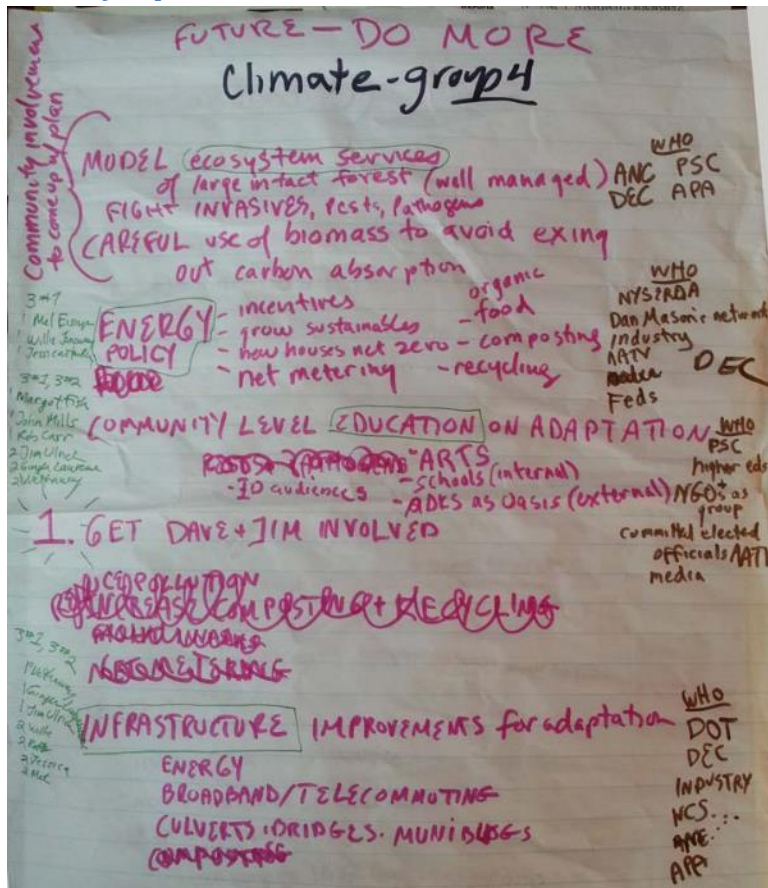 FUTURE — DO MORE
Climate-group 4
Community involvement
to come up w/ plan
MODEL ecosystem services
of large intact forest (well managed)
FIGHT INVASIVES, Pests, Pathogens
CAREFUL use of biomass to avoid exing
out carbon absorption
WHO
ANC PSC
DEC APA
ENERGY
POLICY
- incentives
- grow sustainables
- new houses net zero
- net metering
organic
- food
- composting
- recycling
WHO
NYSERDA
Dan Masonic network
industry
AATV
DEC
Feds
3 #1
3 #1, 3 #2
Margot Fish
John Mills
Rob Carr
2 Jim Ulrich
COMMUNITY LEVEL EDUCATION ON ADAPTATION
- ARTS
- schools (internal)
- ID audiences
- ADKS as Oasis (external)
WHO
PSC
higher eds
NGOs as
group
committed elected
officials AATV
media
1. GET DAVE + JIM INVOLVED
INCREASE COMPOSTING + RECYCLING
3 #1, 3 #2
1 Jim Ulrich
2 Willie
2 Jessica
2 Mel
INFRASTRUCTURE IMPROVEMENTS for adaptation
ENERGY
BROADBAND/TELECOMMUTING
CULVERTS. BRIDGES. MUNI BLDGS
WHO
DOT
DEC
INDUSTRY
NCS...
APA